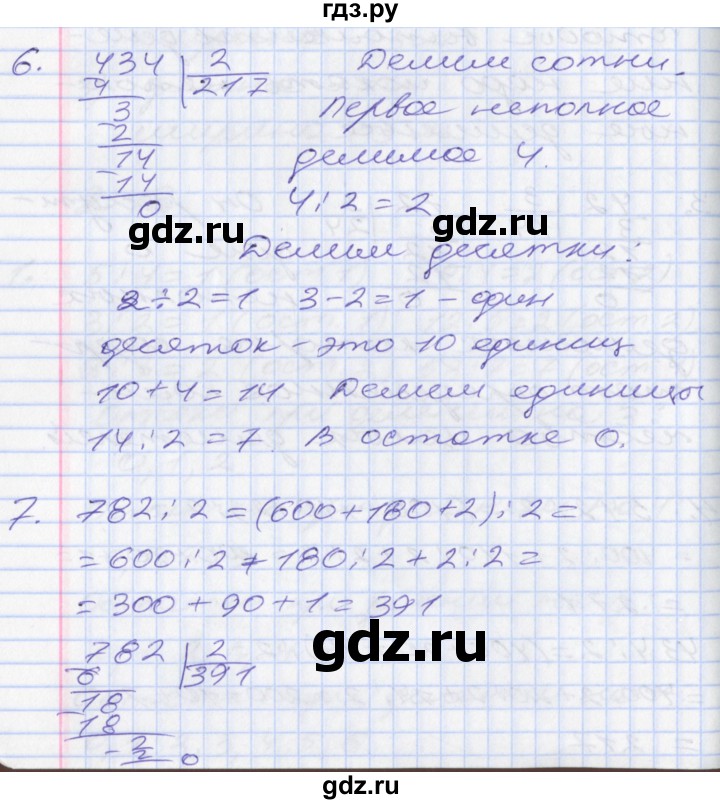 гдз.ру
6. 434 | 2 Делим сотни.
4 217 Первое неполное
3
2 делимое 4.
14
14 4 : 2 = 2
0
gdz.ru gdz.ru
Делим десятки:
2 ÷ 2 = 1 3 - 2 = 1 - один
десяток - это 10 единиц
10 + 4 = 14 Делим единицы
14 : 2 = 7. В остатке 0.
7. 782 : 2 = (600 + 180 + 2) : 2 =
= 600 : 2 + 180 : 2 + 2 : 2 =
= 300 + 90 + 1 = 391
gdz.ru
782 | 2
6 391
18
18
- 2
2 0
gdz.ru